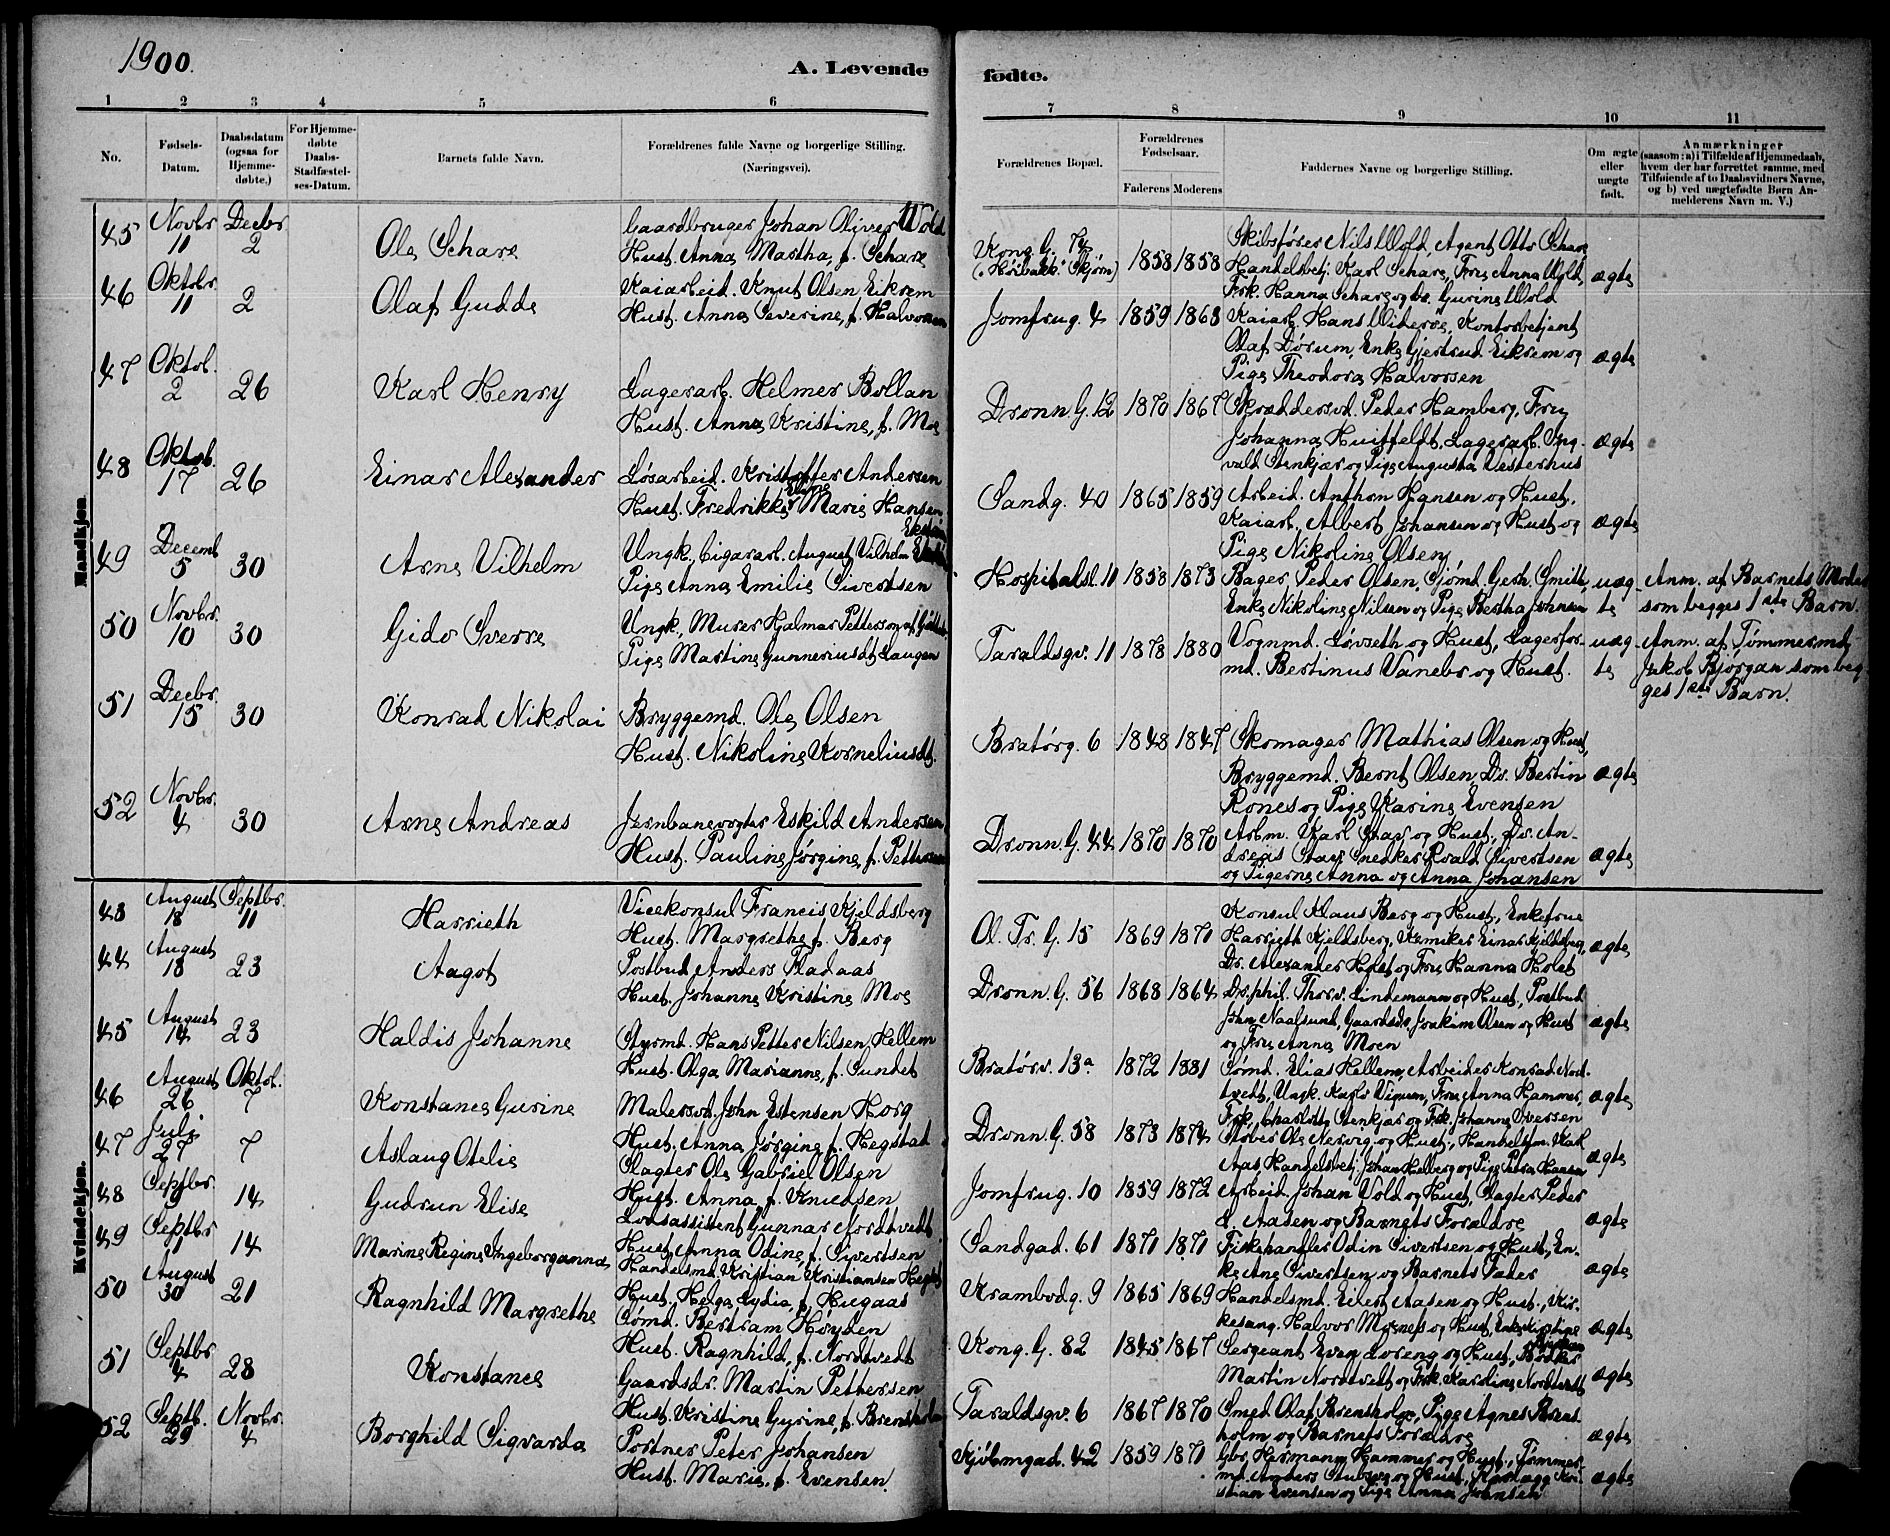 1900.
A. Levende fødte.
1 2 3 4 5 6 7 8 9 10 11
No.
Fødsels-Datum.
Daabsdatum (ogsaa for Hjemme-døbte.)
For Hjemme-døbte Daabs-Stadfæstel-ses-Datum.
Barnets fulde Navn.
Forældrenes fulde Navne og borgerlige Stilling. (Næringsvei).
Forældrenes Bopæl.
Forældrenes Fødselsaar.
Faderens Moderens
Faddernes Navne og borgerlige Stilling.
Om ægte eller uægte født.
Anmærkninger
(saasom: a) i Tilfælde af Hjemmedaab, hvem der har forrettet samme, med Tilføiende af to Daabsvidners Navne, og b) ved uægtefødte Børn Anmelderens Navn m. V.)
Mandkjøn
45 Novbr 11 Decbr 2 Ole Schare
Gaardbruger Johan Oliver Wold
Hust. Anna Martha, f. Schare
Kong. G. 74
("Høibakk" Skjørn) 1858 1858
Skibsfører Nils Wold, Agent Otto Schare
Handelsbetj. Karl Schare, Fru Anna Wold,
Frk. Hanna Schare og do. Gurine Wold
ægte
46 Oktobr 11 2 Olaf Gudde
Kaiarbeid. Knut Olsen Eikrem
Hust. Anna Severine, f. Halvorsen
Jomfrug. 4 1859 1863
Kaiarb. Hans Widerøe, Kontorbetjent
Olaf Dørum, Enke Gjertrud Eikrem og
Pige Theodora Halvorsen
ægte
47 Oktob. 2 26 Karl Henry
Lagerarb. Helmer Bollan
Hust. Anna Kristine, f. Moe
Dronn. G. 12 1870 1867
Skræddersvd. Peder Hamberg, Fru
Johanna Huitfeldt, Lagerarb. Ing-
vald Stenkjær og Pige Augusta Vesterhus
ægte
48 Oktob. 17 26 Einar Alexander
Løsarbeid. Kristoffer Andersen
Hust. Fredrikke Marie Hansen
Sandg. 40 1865 1859
Arbeid. Anthon Hansen og Hust,
Kaiarb. Albert Johansen og Hust og
Pige Nikoline Olsen
ægte
49 Decemb 5 30 Arne Vilhelm
Ungk., Cigararb. August Vilhelm
Pige Anna Emilie Sivertsen
Hospitalsl. 11 1858 1873
Bager Peder Olsen, Sjømd. Gerh. Smith,
Enke Nikoline Nilsen og Pige Bertha Johnsen
uæg-
te
Anm. af Barnets Moder
som begges 1ste Barn.
50 Novbr. 10 30 Gido Sverre
Ungk., Murer Hjalmar Petterson af
Pige Martine Gunneriusdt. Laugen
Taraldsgv. 11 1878 1880
Vognmd. Løvseth og Hust, Lagerfor-
md. Bertinus Vanebo og Hust.
uæg-
te
Anm. af Tømmermd
Jakob Bjørgan som beg-
ges 1ste Barn.
51 Decbr. 15 30 Konrad Nikolai
Bryggemd. Ole Olsen
Hust. Nikoline Korneliusdt.
Bratørg. 6 1848 1847
Skomager Mathias Olsen og Hust,
Bryggemd. Bernt Olsen, Do. Bertin
Rones og Pige Karine Evensen
ægte
52 Novbr. 4 30 Arne Andreas
Jernbanevogter Eskild Andersen
Hust. Pauline Jørgine, f. Pettersen
Dronn. G. 44 1870 1870
Arbm. Karl Stav og Hust., Do. An-
dreas Stav, Snedker Roald Sivertsen
og Pigerne Anna og Anna Johansen
ægte
Kvindekjøn.
43 August 18 Septbr. 11 Harrieth
Vicekonsul Francis Kjeldsberg
Hust. Margrethe f. Berg
Ol. Tr. G. 15 1869 1871
Konsul Klaus Berg og Hust, Enkefrue
Harrieth Kjeldsberg, Kemiker Einar Kjeldsberg,
Dr. Alexander Holst og Fru Hanna Holst
ægte
44 August 18 23 Aagot
Postbud Anders Fladaas
Hust. Johanne Kristine Moe
Dronn. G. 56 1868 1864
Dr. phil. Thorv. Lindemann og Hust, Postbud
John Naalsund, Gaardsdr. Joakim Olsen og Hust
og Fru Anna Moen
ægte
45 August 14 23 Haldis Johanne
Styrmd. Hans Petter Nilsen Hellem
Hust. Olga Marianne, f. Sundet
Bratørv. 13a 1872 1881
Sømd. Elias Hellem, Arbeider Konrad Nord-
tvedt, Ungk. Karl Viguen, Fru Anna Hammer,
Frk. Charlotte Stenkjær og Frk. Johanna Iversen
ægte
46 August 26 Oktob. 7 Konstance Gurine
Malersvd. John Estensen Horg
Hust. Anna Jørgine f. Hegstad
Dronn. G. 58 1873 1874
Støber Ole Nervig og Hust, Handelsfm. Karl
Aas, Handelsbetj. Johan Helberg og Pige Petra Hansen
ægte
47 Juli 27 7 Aslaug Otelie
Slagter Ole Gabriel Olsen
Hust. Anna f. Knudsen
Jomfrug. 10 1859 1872
Arbeid. Johan Vold og Hust, Slagter Peder
L. Aasen og Barnets Forældre
ægte
48 Septbr. 14 Gudrun Elise
Lodsassistent Gunnar Nordtvedt
Hust. Anna Odine, f. Sivertsen
Sandgad. 61 1871 1871
Fiskehandler Odin Sivertsen og Hust, En-
ke Ane Sivertsen og Barnets Fader
ægte
49 Septbr 11 14 Marine Regine Ingeborganna
Handelsmd. Kristian Kristiansen
Hust. Helga Lydia, f. Hugaas
Krambodg. 9 1865 1869
Handelsmd. Eilert Aasen og Hust., Kir-
kesang. Halvor Mosnes og Hust, Enke Kirstine
ægte
50 August 30 21 Ragnhild Margrethe
Sømd. Bertram Høyden
Hust. Ragnhild, f. Nordtvedt
Kong. G. 82 1845 1867
Sergeant Even Loreng og Hust, Bødker
Martin Nordtvedt og Frk. Karoline Nordtvedt
ægte
51 Septbr 4 28 Konstance
Gaardsdr. Martin Pettersen
Hust. Kristine Gurine, f. Brensholm
Taraldsgv. 6 1867 1870
Smed Olaf Brensholm, Pige Agnes Brens-
holm og Barnets Forældre
ægte
52 Septb. 29 Novbr. 4 Borghild Sigvarda
Portner Peter Johansen
Hust. Marie, f. Evensen
Kjøbmgad. 42 1859 1871
Gbr. Hermann Hammer og Hust, Tømmer-
md. Anders Stuberg og Hust, Kri-
stian Evensen og Pige Anna Johnsen
ægte